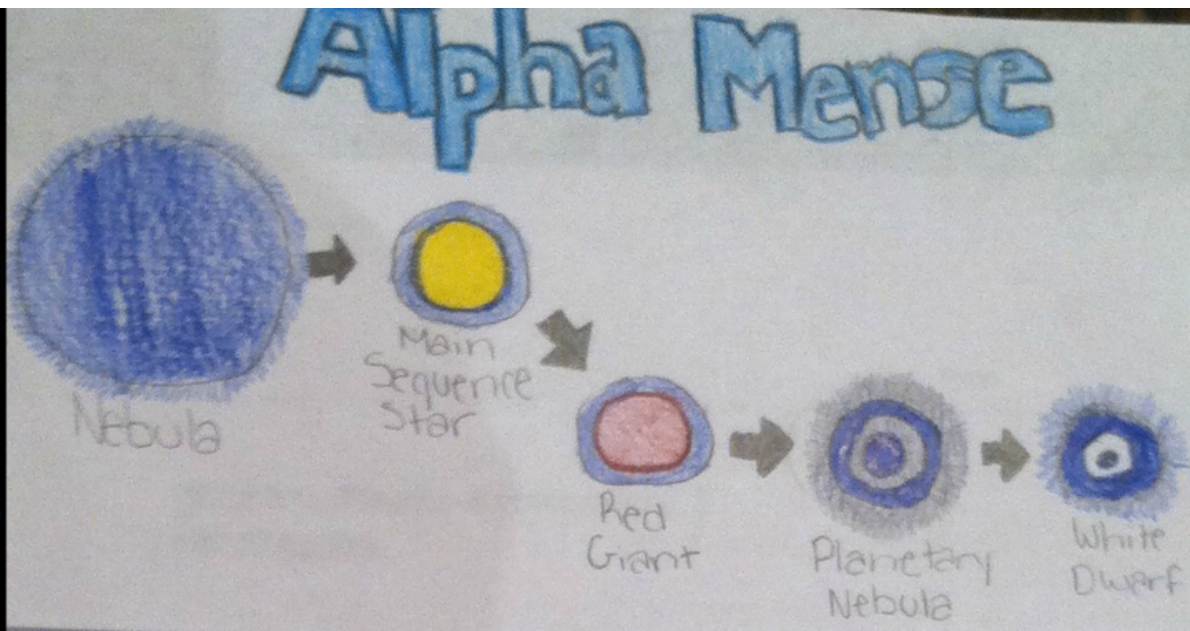 Alpha Mense
Nebula
Main
Sequence
Star
Red
Giant
Planetary
Nebula
White
Dwarf